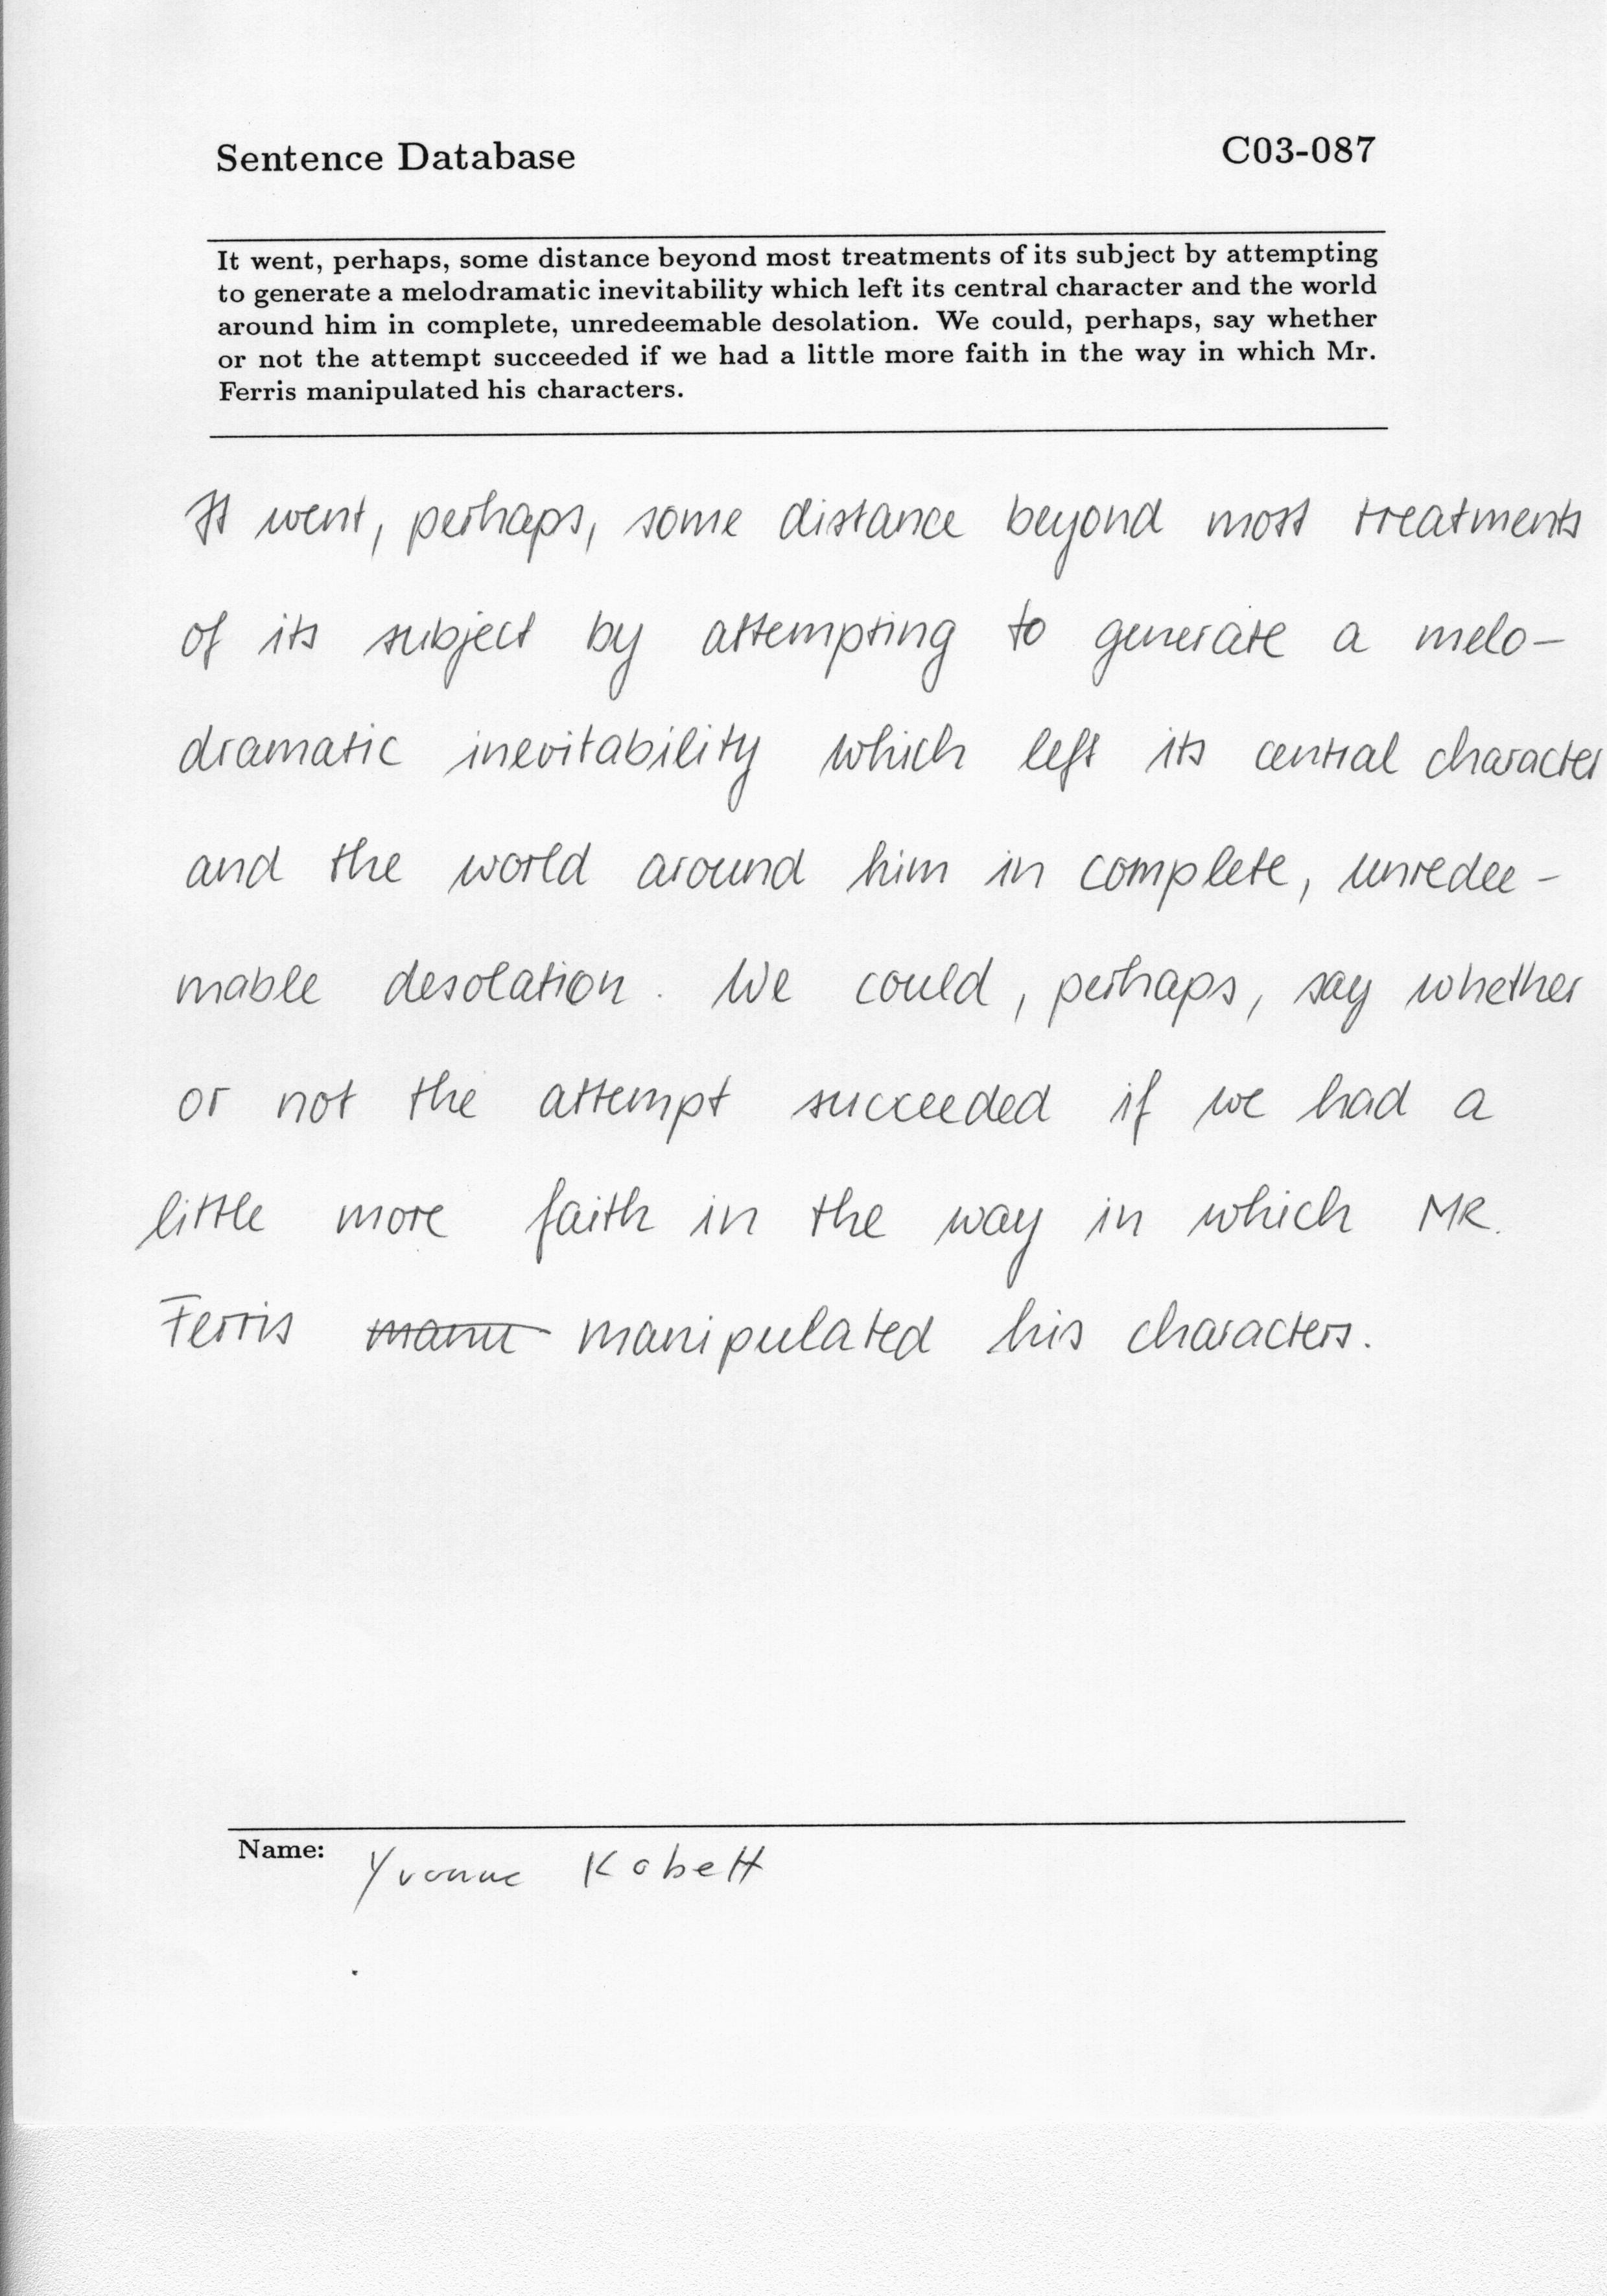 Sentence Database
C03-087
It went, perhaps, some distance beyond most treatments of its subject by attempting
to generate a melodramatic inevitability which left its central character and the world
around him in complete, unredeemable desolation. We could, perhaps, say whether
or not the attempt succeeded if we had a little more faith in the way in which Mr.
Ferris manipulated his characters.
It went, perhaps, some distance beyond most treatments
of its subject by attempting to generate a melo-
dramatic inevitability which left its central character
and the world around him in complete, unredee-
mable desolation. We could, perhaps, say whether
or not the attempt succeeded if we had a
little more faith in the way in which MR.
Ferris manipulated his characters.
Name: Yvonne Kobett